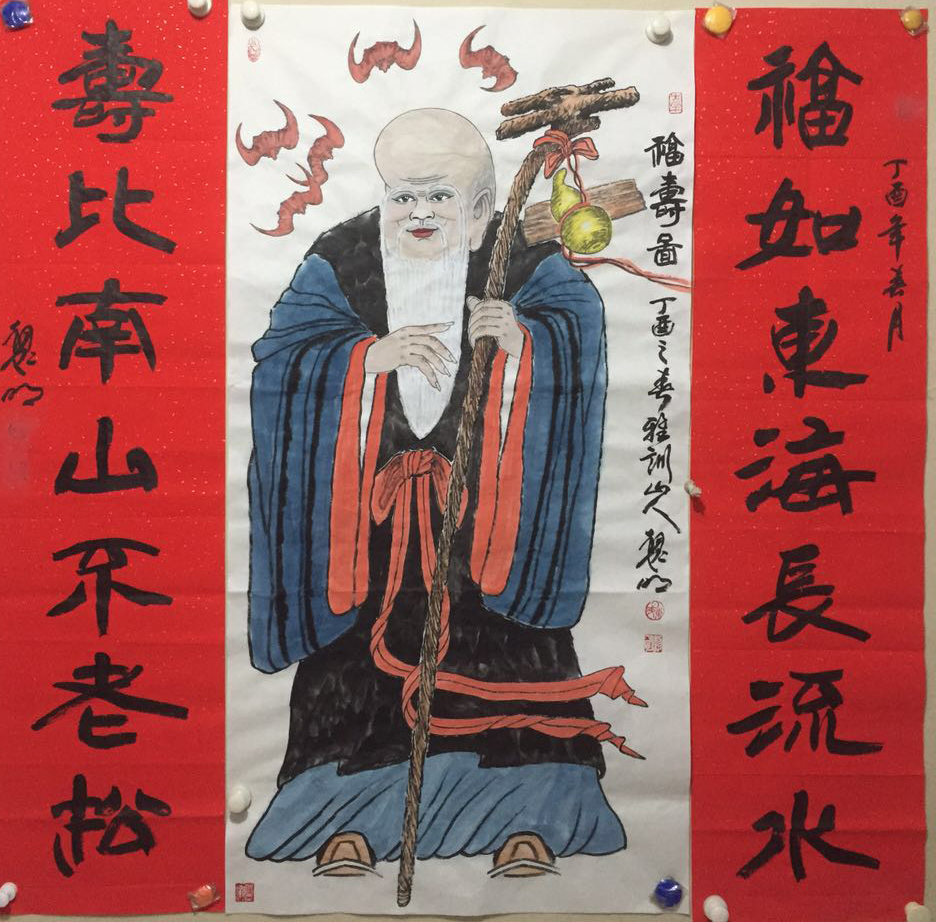 福如東海長流水
丁酉年春月
福壽圖
丁酉之春雅訓山人魏明
壽比南山不老松
魏明